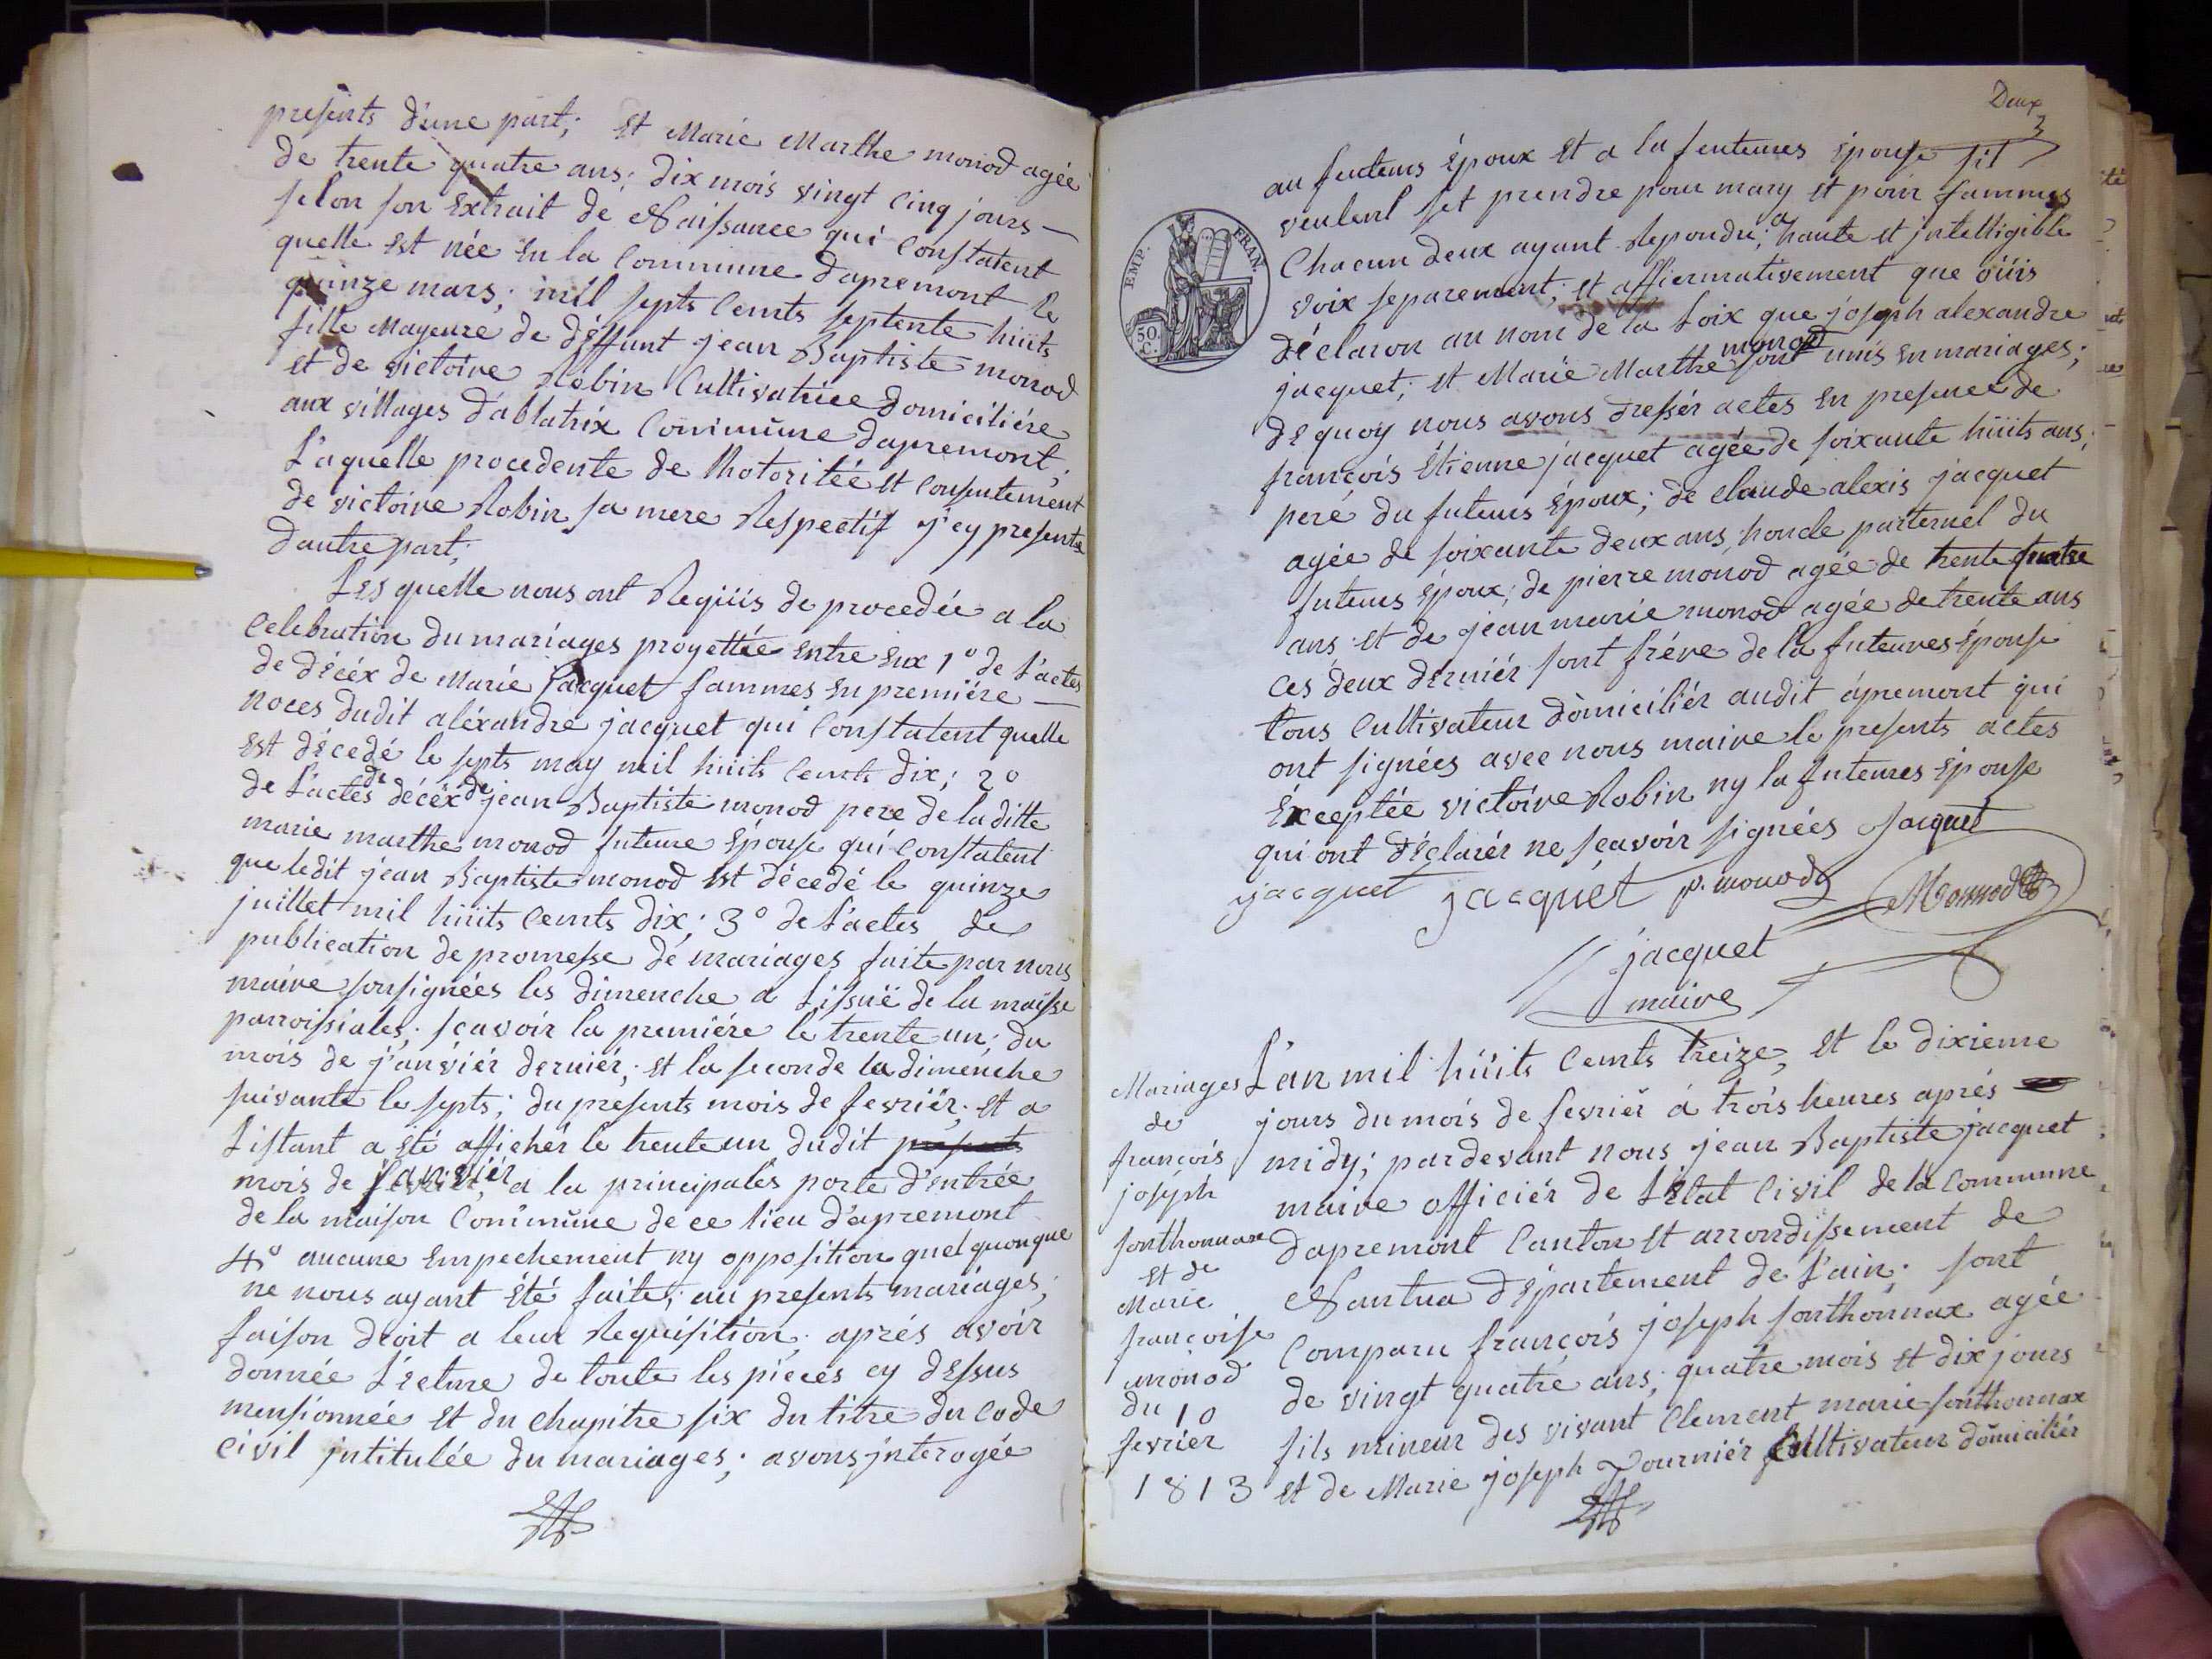 presents d'une part; Et Marie Marthe monod agée
de trente quatre ans; dix mois vingt cinq jours —
selon son Extrait de Naissance qui Constatent
quelle Est née En la Commune dapremont le
quinze mars; mil septs Cents septente hüits
fille Mayeure de déffunt jean Baptiste monod
et de victoire Robin Cultivatrice domiciliére
aux villages dablatrix Commune dapremont;
Laquelle procedente de lhotoritée et Consentement
de victoire Robin sa mere Respectif j'cy presente
dautre part;
Les quelle nous ont Reqüis de procedée a la
Celebration du mariages proyettée Entre Eux 1º de L'actes
de décéx de Marie Jacquet fammes En premiére —
noces dudit aléxandre jacquet qui Constatent quelle
Est décedé le septs may mil hüits Cents dix; 2º
de L'actes de décéx de jean Baptiste monod pere de la ditte
marie marthe monod future Épouse qui Constatent
que ledit jean Baptiste monod Est décedé le quinze
juillet mil hüits Cents dix; 3º de L'actes de
publication de promesse de mariages faite par nous
maire sousignées les dimenche a Lissuë de la maisse
parroissiales; sçavoir la premiére le trente un; du
mois de j'anviér derniér; Et la seconde la dimenche
suivante le septs; du presents mois de fevriér; Et a
Listant a Eté affichér le trente un dudit presents
mois de janviér, a la principales porte d'Entrée
de la maison Commune de ce lieu d'apremont
4º aucune Empechement ny opposition quel quonque
ne nous ayant Été faite; au presents mariages;
faison droit a leur Requisition; aprés avoir
donnée Lecture de toute les piéces cy dessus
mensionnée Et du Chapitre six du titre du Code
Civil jntitulée du mariages; avons jnterogée
Deux
3
au futeurs Époux Et a la futeures Épouse sil
veulent set prendre pour mary Et pour fammes
Chacun deux ayant Repondu; a haute et jntelligible
voix separement; Et affiermativement que oüis
déclaron au nom de la Loix que joseph alexandre
jacquet; Et Marie Marthe monod sont unis En mariages;
de quoy nous avons dressér actes En presence de
françois Étienne jacquet agée de soixante hüits ans;
peré du futeurs Époux; de Claude alexis jacquet
agée de soixante deux ans, honcle parternel du
futeurs Époux; de pierre monod agée de trente quatre
ans et de jean marie monod agée de trente ans
Ces deux derniér sont frére de la futeures Épouse
tous Cultivateur domiciliér audit apremont qui
ont signées avec nous maire le presents actes
Éxceptée victoire Robin ny la futeures Épouse
qui ont déclarér ne sçavoir signées Jacquet
jacquet jacquet p. monod Monnod
jacquet
maire
EMP. FRAN.
50.
C.
Mariages
de
françois
joseph
sonthonnax
Et de
Marie
françoise
monod
du 10
fevrier
1813
L'an mil hüits Cents treize, Et le dixieme
jours du mois de fevriér á trois heures aprés
midy; pardevant nous jean Baptiste jacquet
maire officiér de L'État Civil de la Commune
dapremont Canton Et arrondissement de
Nantua département de L'ain; sont
Comparu françois joseph sonthonnax agée
de vingt quatre ans; quatre mois Et dix jours
fils mineur des vivant Clement marie sonthonnax
Et de Marie joseph Fourniér Cultivateur domiciliér